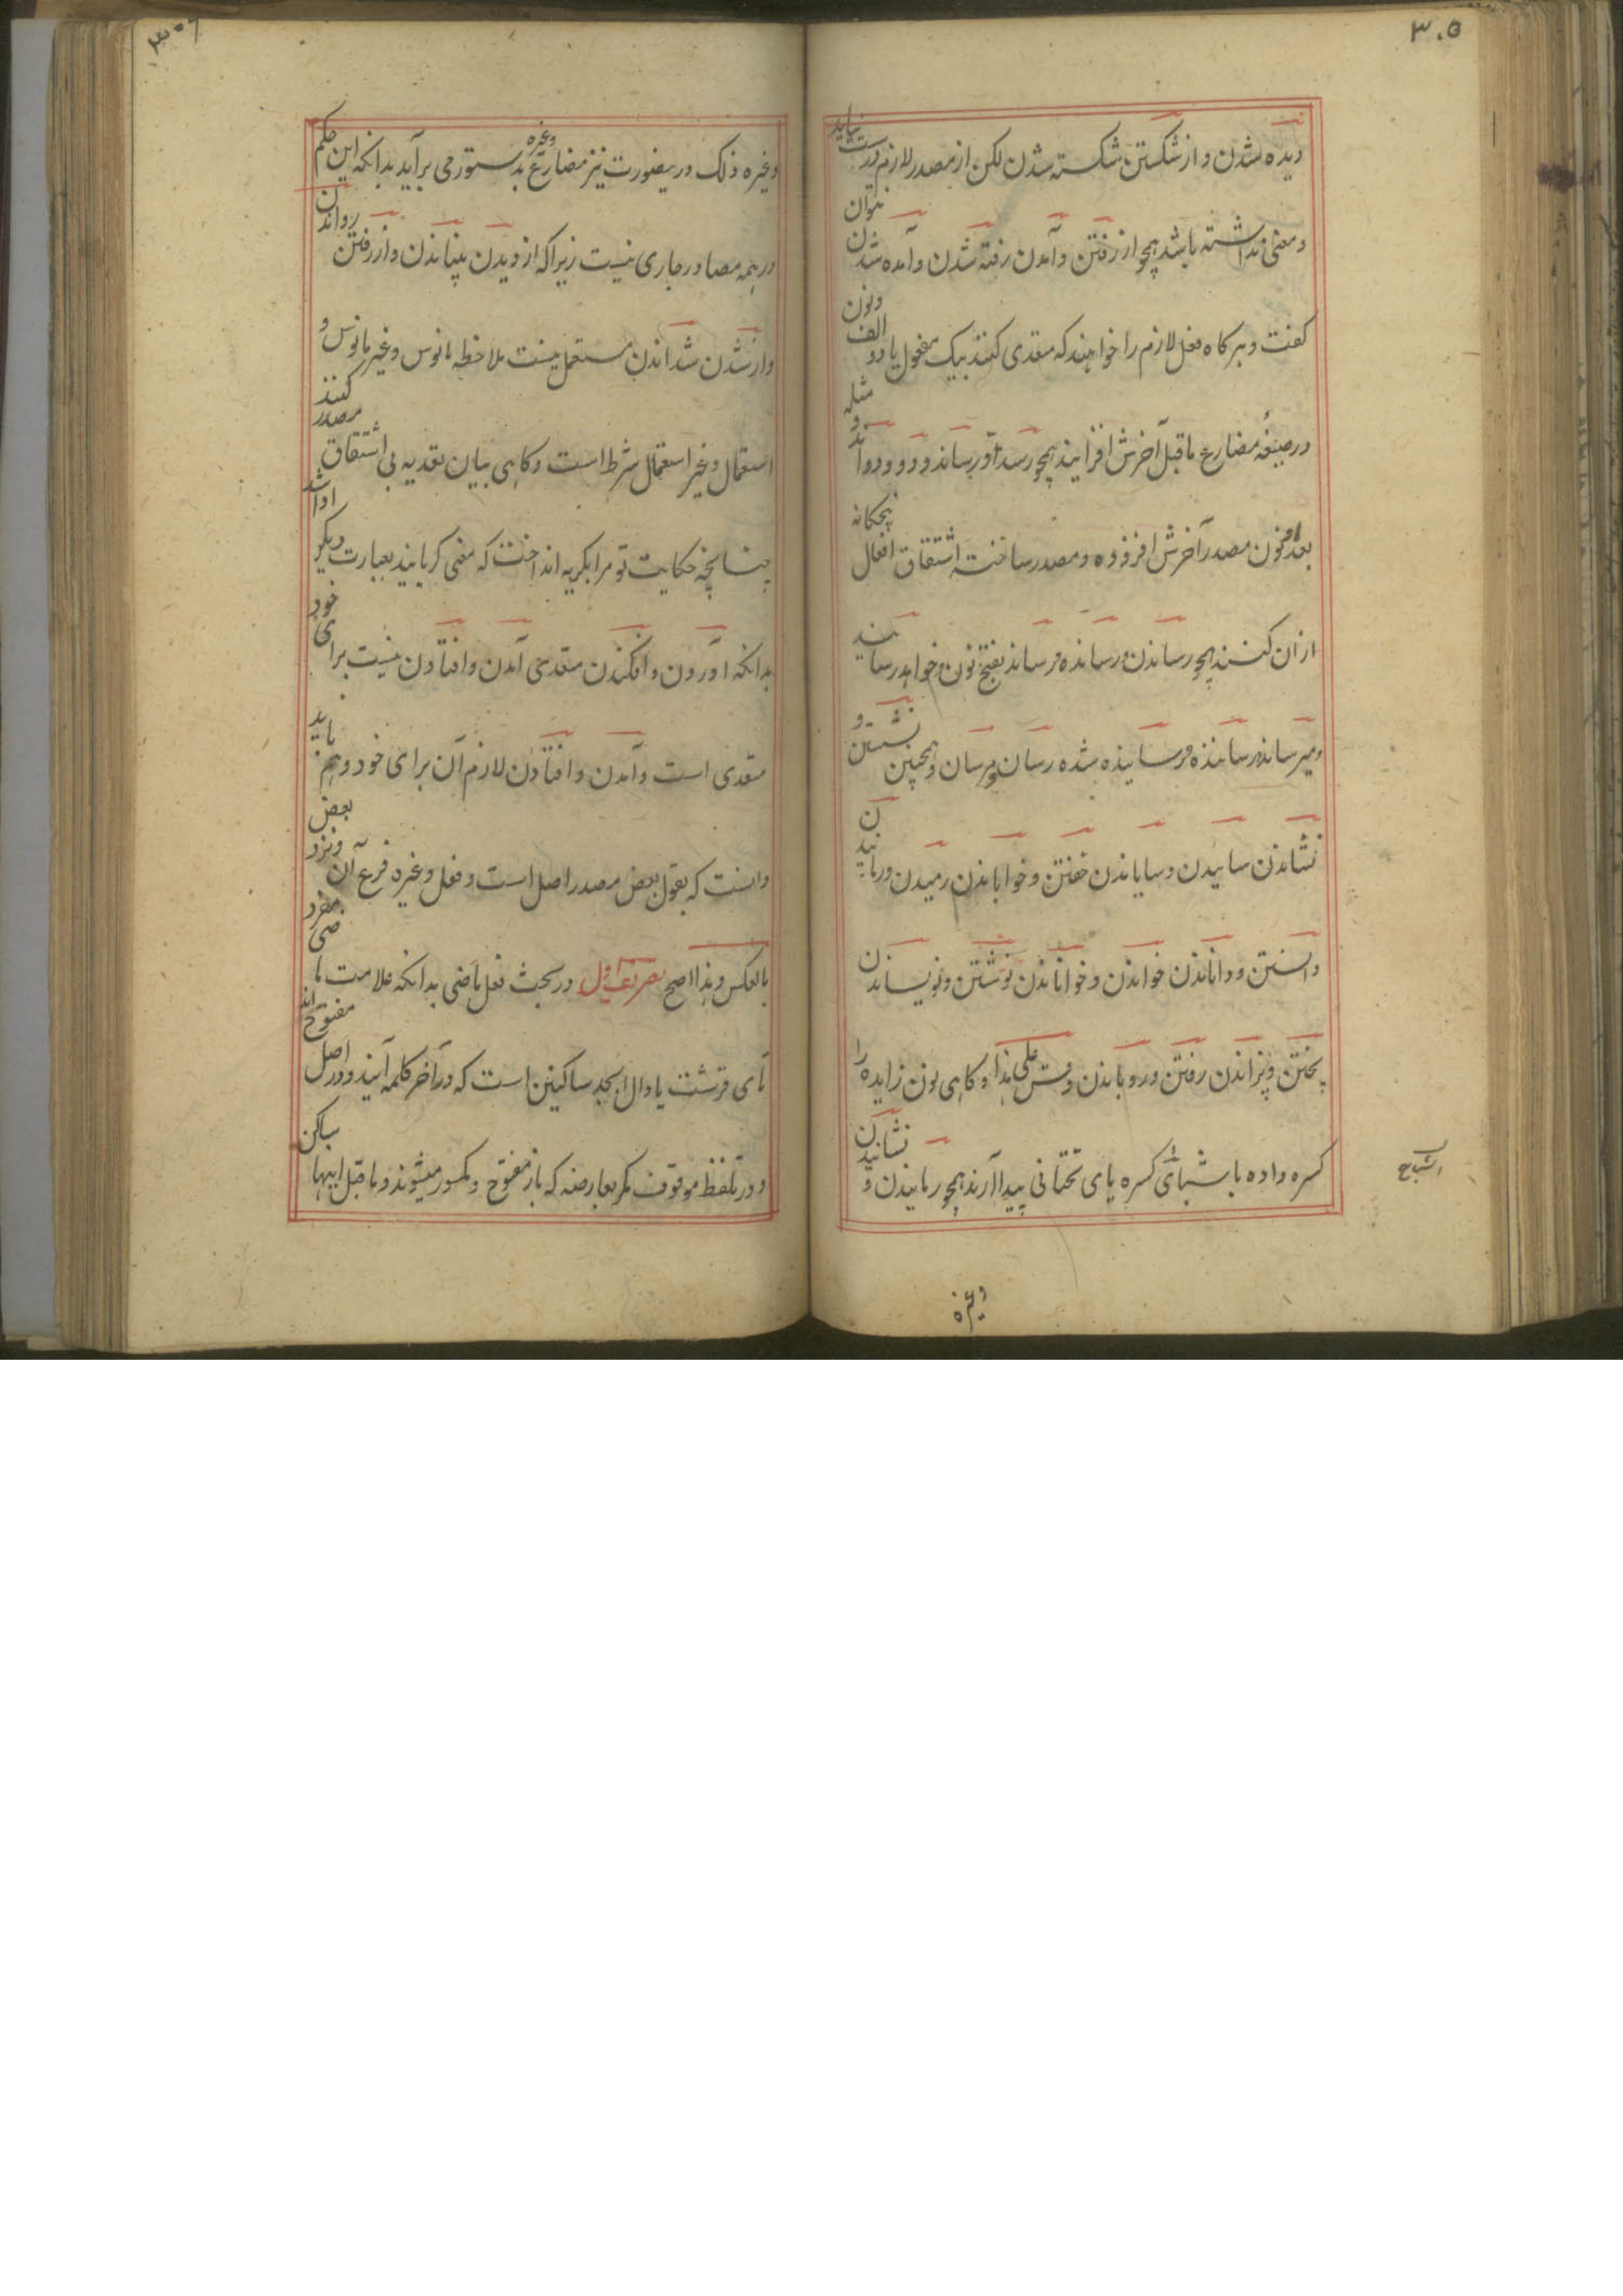 ۳۰۵
دیده شدن و از شکستن شکسته شدن لکن از مصدر لازم درست نیاید
و معنی نداشته باشد همچو از رفتن و آمدن رفته شدن و آمده شدن نتوان
کفت و هر کاه فعل لازم را خواهند که متعدی کنند بیک مفعول یا دو الف ونون
در صیغهٔ مضارع ماقبل آخرش افزایند همچو رسد و رساند و دود و دواند و مثله
بعد نون مصدر آخرش افزوده و مصدر ساخته اشتقاق افعال پنجکانه
ازان کنند همچو رساندن و رسانده و رساند بفتح نون و خواهد رسانید
و میرساند و رساننده و رسانیده شده رسان و مرسان و همچنین نشستن و
نشاندن سائیدن و سایاندن خفتن و خواباندن رمیدن و رمانیدن
دانستن و داناندن خواندن و خواناندن نوشتن و نویساندن
پختن و پزاندن رفتن و روباندن و قس علی هذا و کاهی نون زایده را
کسره داده باشباع کسره یای تحتانی پیدا آرند همچو رمانیدن و نشانیدن
اشباع
وغیره
۳۰۶
وغیره ذلک درینصورت نیز مضارع وغیره بدستور می برآید بدانکه این حکم
در همه مصادر جاری نیست زیرا که از دیدن بیناندن و از رفتن رواندن
و از شدن شداندن مستعمل نیست ملاحظه مانوس و غیر مانوس و
استعمال و غیر استعمال شرط است و کاهی بیان تعدیه بی اشتقاق مصدر کنند
چنانچه حکایت تو مرا بکریه انداخت که معنی کریانید بعبارت دیکر ادا شد
بدانکه آوردن و افکندن متعدی آمدن و افتادن نیست برای خود
متعدی است و آمدن و افتادن لازم آن برای خود و هم باید
دانست که بقول بعض مصدر اصل است و فعل وغیره فرع آن و نزد بعض
بالعکس و هذا اصح تصریف اول در بحث فعل ماضی بدانکه علامت ماضی مفرد
تای قرشت یا دال ابجد ساکنین است که در آخر کلمه آیند و در اصل مفتوح اند
و در تلفظ موقوف مکر بعارضه که باز مفتوح و مکسور میشوند و ماقبل اینها ساکن